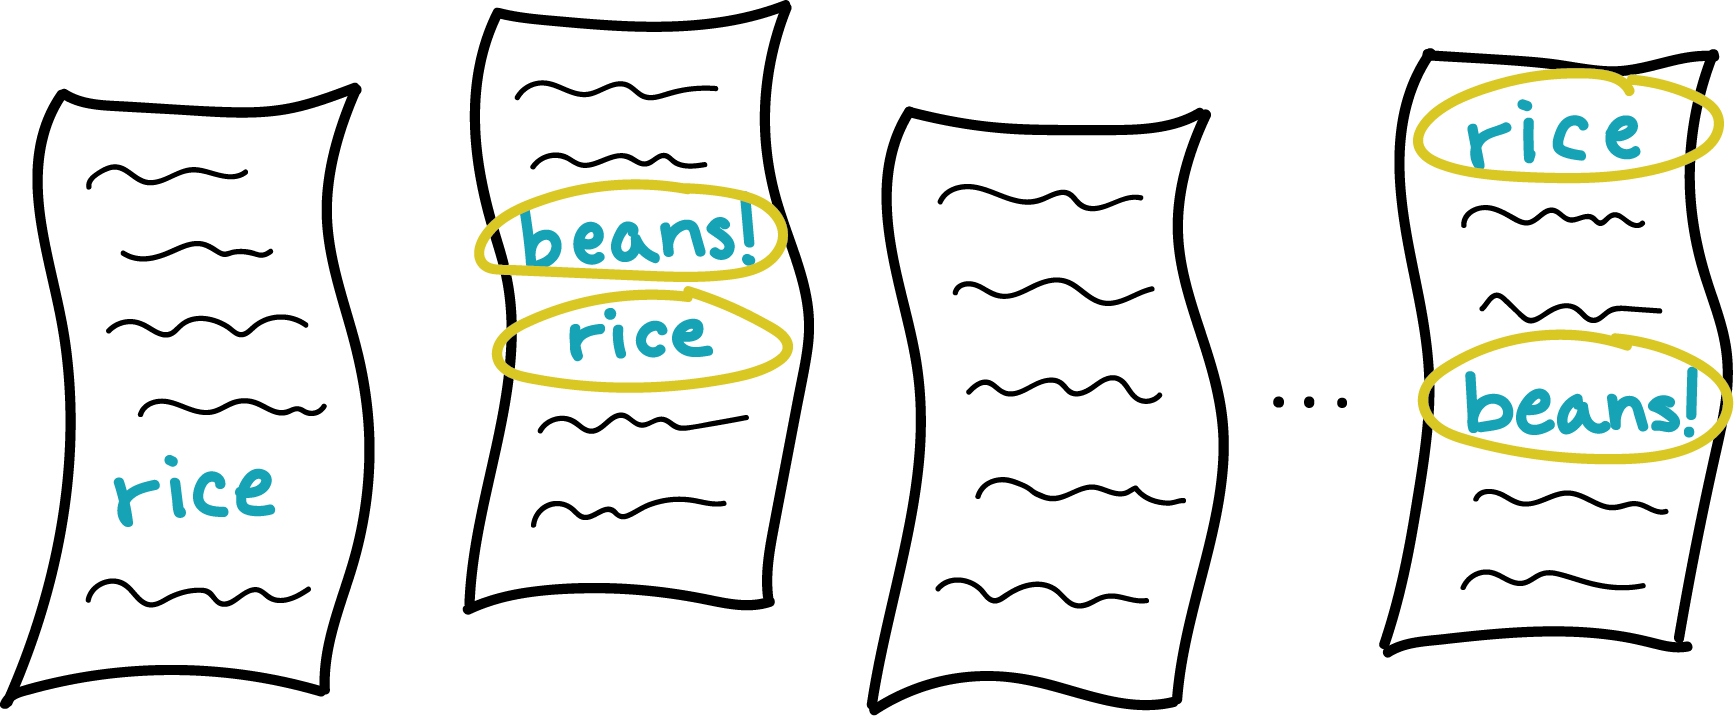 rice
beans!
rice
...
rice
beans!